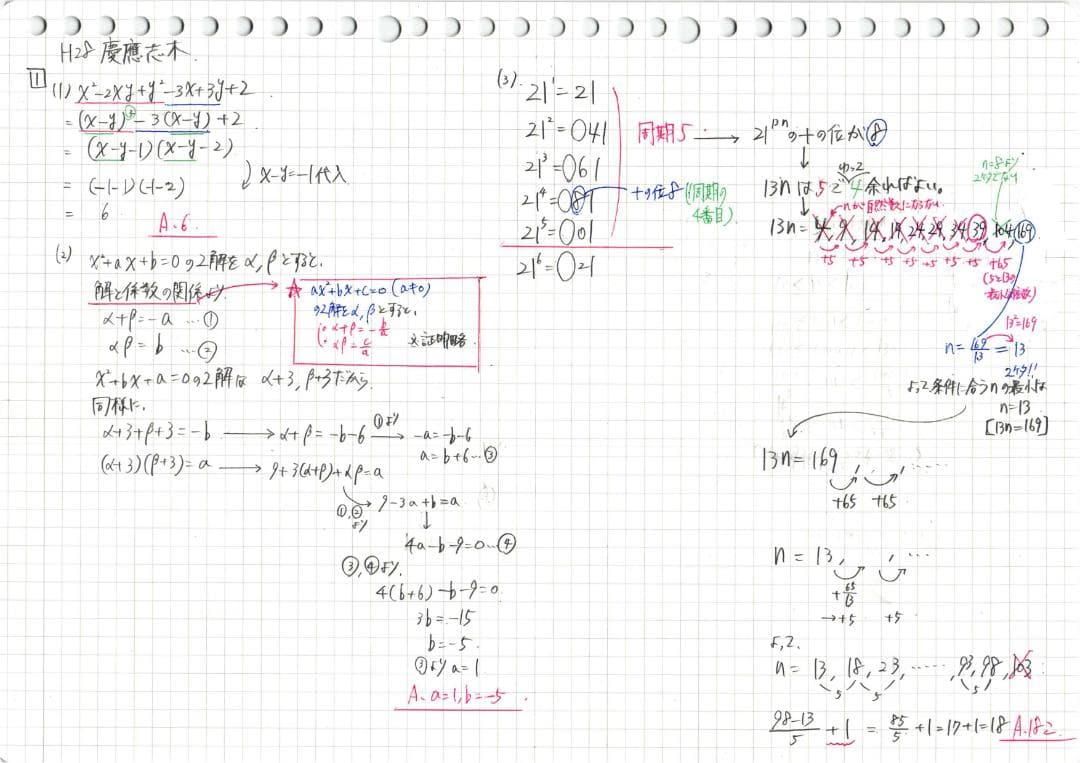 H28 慶應志木.
1
(1) x²-2xy+y²-3x+3y+2
= (x-y)²-3(x-y)+2
= (x-y-1)(x-y-2)
x-y=-1代入
= (-1-1)(-1-2)
= 6
A. 6
(2) x²+ax+b=0の2解をα, βとすると、
解と係数の関係より
α+β=-a …①
αβ=b …②
★ ax²+bx+c=0 (a≠0)
の2解をα, βとすると、
・α+β=-b/a
・αβ=c/a
※証明略
x²+bx+a=0の2解は α+3, β+3だから
同様に、
α+3+β+3=-b → α+β=-b-6 ①より -a=-b-6
a=b+6…③
(α+3)(β+3)=a → 9+3(α+β)+αβ=a
①,②より → 9-3a+b=a
↓
4a-b-9=0…④
③,④より、
4(b+6)-b-9=0
3b=-15
b=-5
③より a=1
A. a=1, b=-5
(3).
21¹=21
21²=○41
21³=○61
21⁴=○81
21⁵=○01
21⁶=○21
周期5 → 21¹³ⁿの十の位が8
十の位8 (1周期の
4番目)
↓
13nは5で4余ればよい。
nが自然数にならない
n=8より
2ケタでない
13n=4, 9, 14, 19, 24, 29, 34, 39, 104, 169
+5 +5 +5 +5 +5 +5 +5 +65
(5と13の
最小公倍数)
13²=169
n=169/13=13
2ケタ!!
よって条件に合うnの最小は
n=13
[13n=169]
13n=169, , , ……
+65 +65
n=13, , , …
+65/13
→+5 +5
よって、
n=13, 18, 23, ……, 93, 98, 103
5 5 5
98-13/5 + 1 = 85/5 + 1 = 17+1=18 A. 18こ